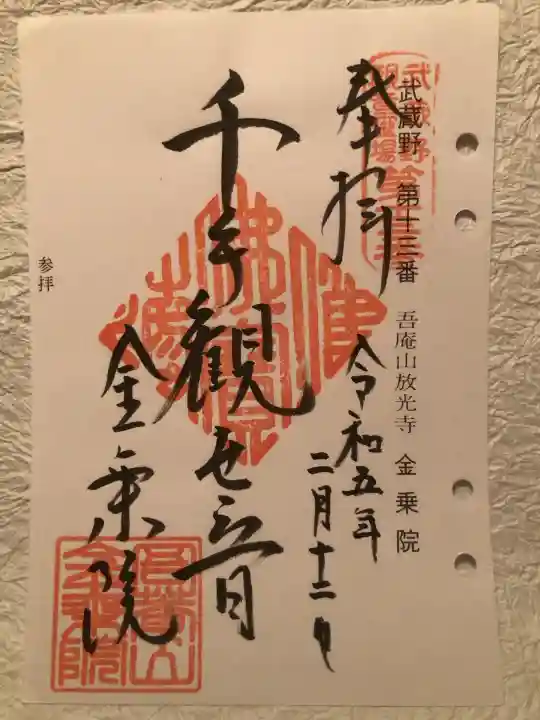 武蔵野 第十三番 吾庵山放光寺 金乗院
奉拝 令和五年
二月十二日
千手観世音
金乗院
参拝
佛法僧寶